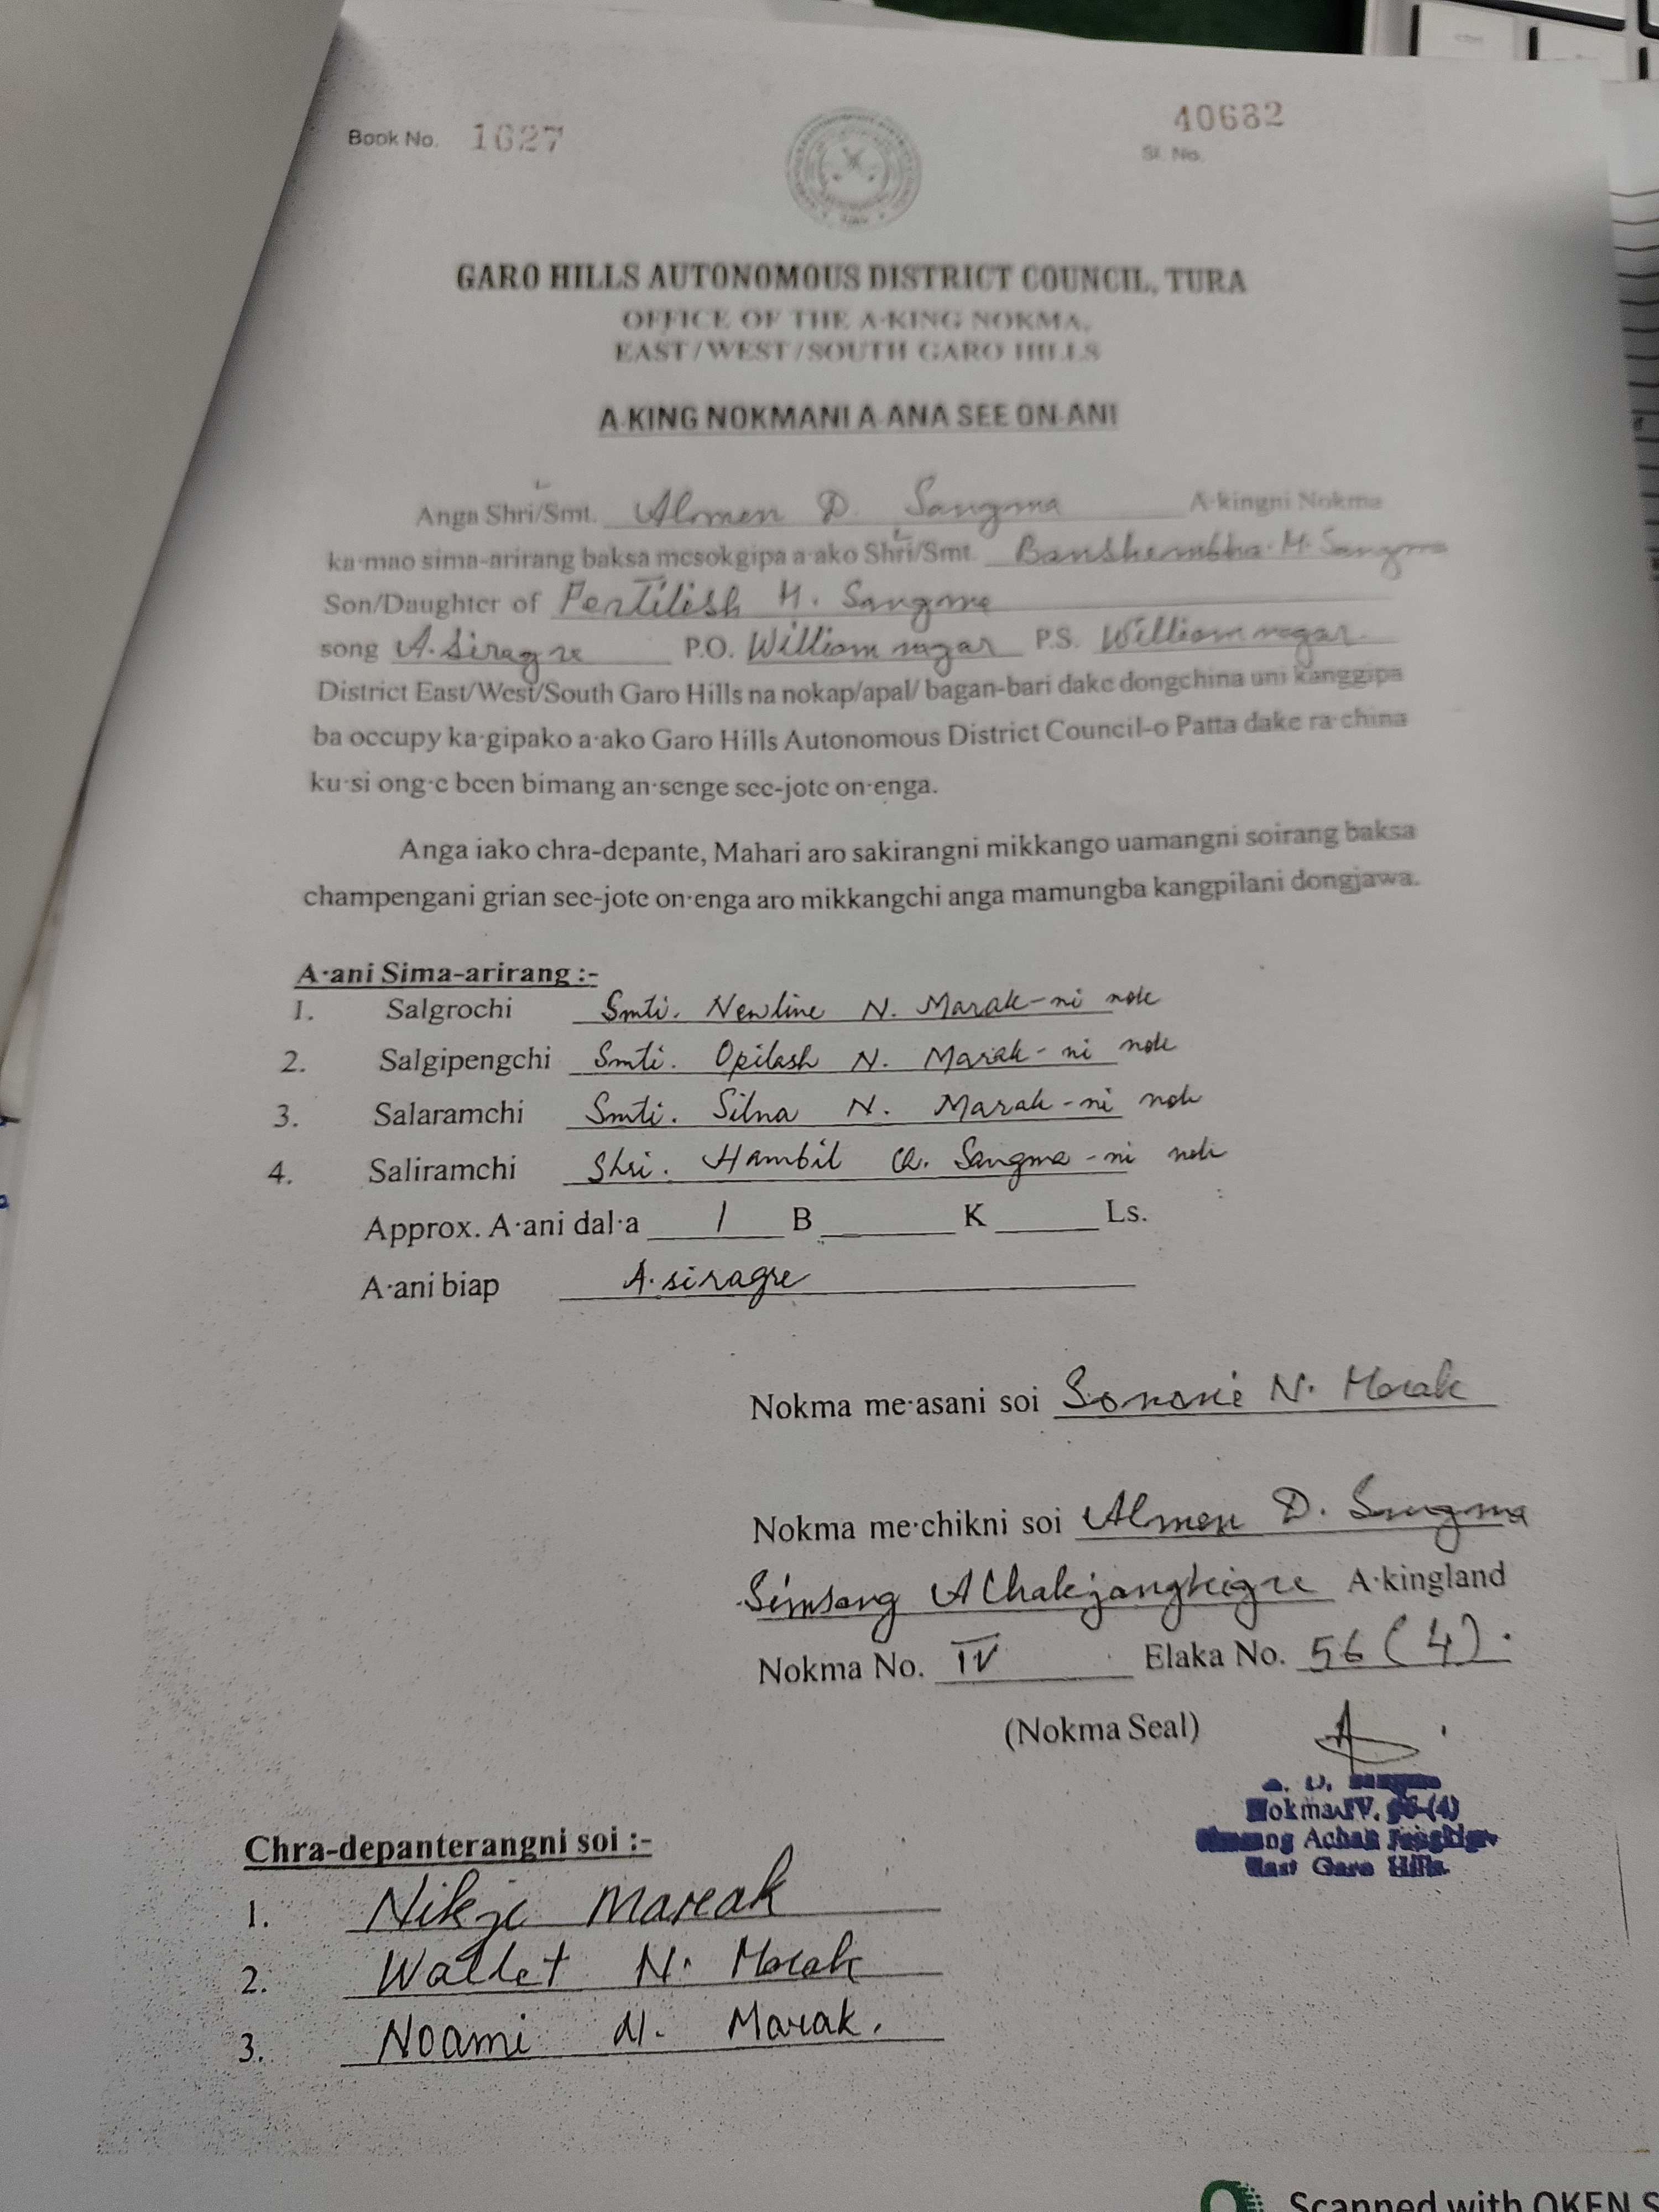 Book No. 1627
40682
Sl. No.
GARO HILLS AUTONOMOUS DISTRICT COUNCIL, TURA
OFFICE OF THE A·KING NOKMA,
EAST/WEST/SOUTH GARO HILLS
A·KING NOKMANI A·ANA SEE ON·ANI
Anga Shri/Smt. Almen D. Sangma A·kingni Nokma
ka·mao sima-arirang baksa mesokgipa a·ako Shri/Smt. Banshembha M. Sangma
Son/Daughter of Pentilish M. Sangma
song A·siragre P.O. Williamnagar P.S. Williamnagar
District East/West/South Garo Hills na nokap/apal/ bagan-bari dake dongchina uni kanggipa
ba occupy ka·gipako a·ako Garo Hills Autonomous District Council-o Patta dake ra·china
ku·si ong·e been bimang an·senge see-jote on·enga.
Anga iako chra-depante, Mahari aro sakirangni mikkango uamangni soirang baksa
champengani grian see-jote on·enga aro mikkangchi anga mamungba kangpilani dongjawa.
A·ani Sima-arirang :-
1. Salgrochi Smti. Newline N. Marak-ni nok
2. Salgipengchi Smti. Opilash N. Marak-ni nok
3. Salaramchi Smti. Silna N. Marak-ni nok
4. Saliramchi Shri. Hambil Ch. Sangma-ni nok
Approx. A·ani dal·a 1 B K Ls.
A·ani biap A·siragre
Nokma me·asani soi N. Marak
Nokma me·chikni soi Almen D. Sangma
Simsang A·kingland
Nokma No. IV Elaka No. 56 (4).
(Nokma Seal)
Nokma IV, 56-(4)
East Garo Hills.
Chra-depanterangni soi :-
1. Marak
2. Wallet N. Marak
3. Noami N. Marak.
Scanned with OKEN S